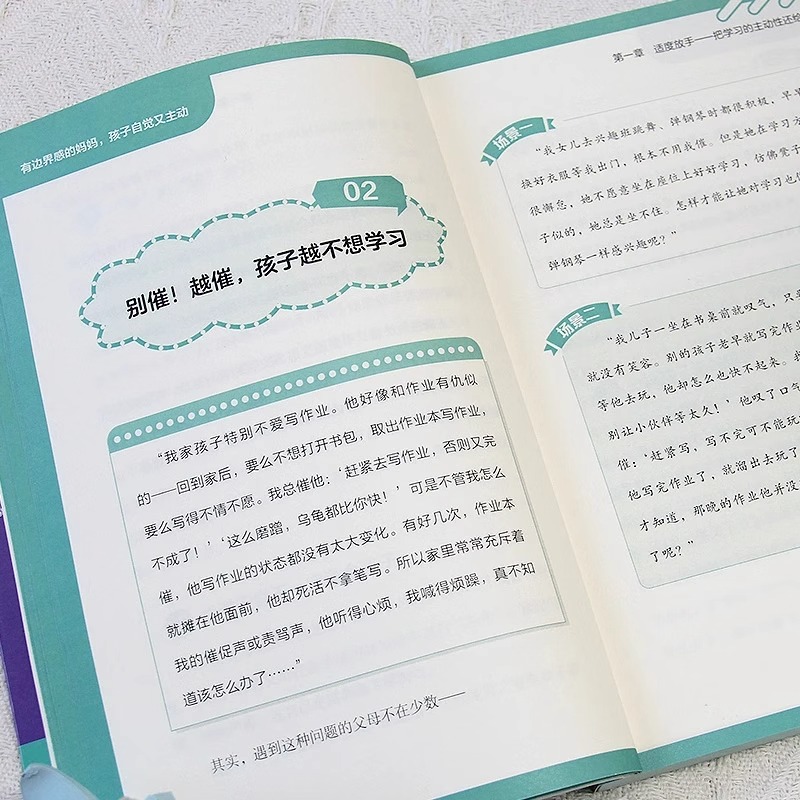 有边界感的妈妈，孩子自觉又主动
02
别催！越催，孩子越不想学习
“我家孩子特别不爱写作业。他好像和作业有仇似
的——回到家后，要么不想打开书包，取出作业本写作业，
要么写得不情不愿。我总催他：‘赶紧去写作业，否则又完
不成了！’‘这么磨蹭，乌龟都比你快！’可是不管我怎么
催，他写作业的状态都没有太大变化。有好几次，作业本
就摊在他面前，他却死活不拿笔写。所以家里常常充斥着
我的催促声或责骂声，他听得心烦，我喊得烦躁，真不知
道该怎么办了……”
其实，遇到这种问题的父母不在少数——
第一章 适度放手——把学习的主动性还给
场景一
“我女儿去兴趣班跳舞、弹钢琴时都很积极，早早
换好衣服等我出门，根本不用我催。但是她在学习方
很懈怠，她不愿意坐在座位上好好学习，仿佛凳子
子似的，她总是坐不住。怎样才能让她对学习也像
弹钢琴一样感兴趣呢？”
场景二
“我儿子一坐在书桌前就叹气，只要
就没有笑容。别的孩子老早就写完作业
等他去玩，他却怎么也快不起来。我
别让小伙伴等太久！’他叹了口气
催：‘赶紧写，写不完可不能玩
他写完作业了，就溜出去玩了
才知道，那晚的作业他并没
了呢？”